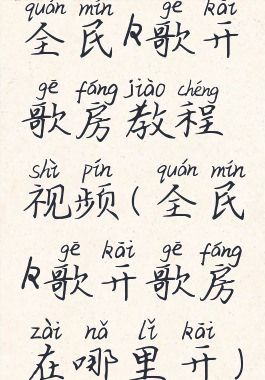 quán mín gē kāi
全民K歌开
gē fáng jiào chéng
歌房教程
shì pín quán mín
视频(全民
gē kāi gē fáng
K歌开歌房
zài nǎ lǐ kāi
在哪里开)